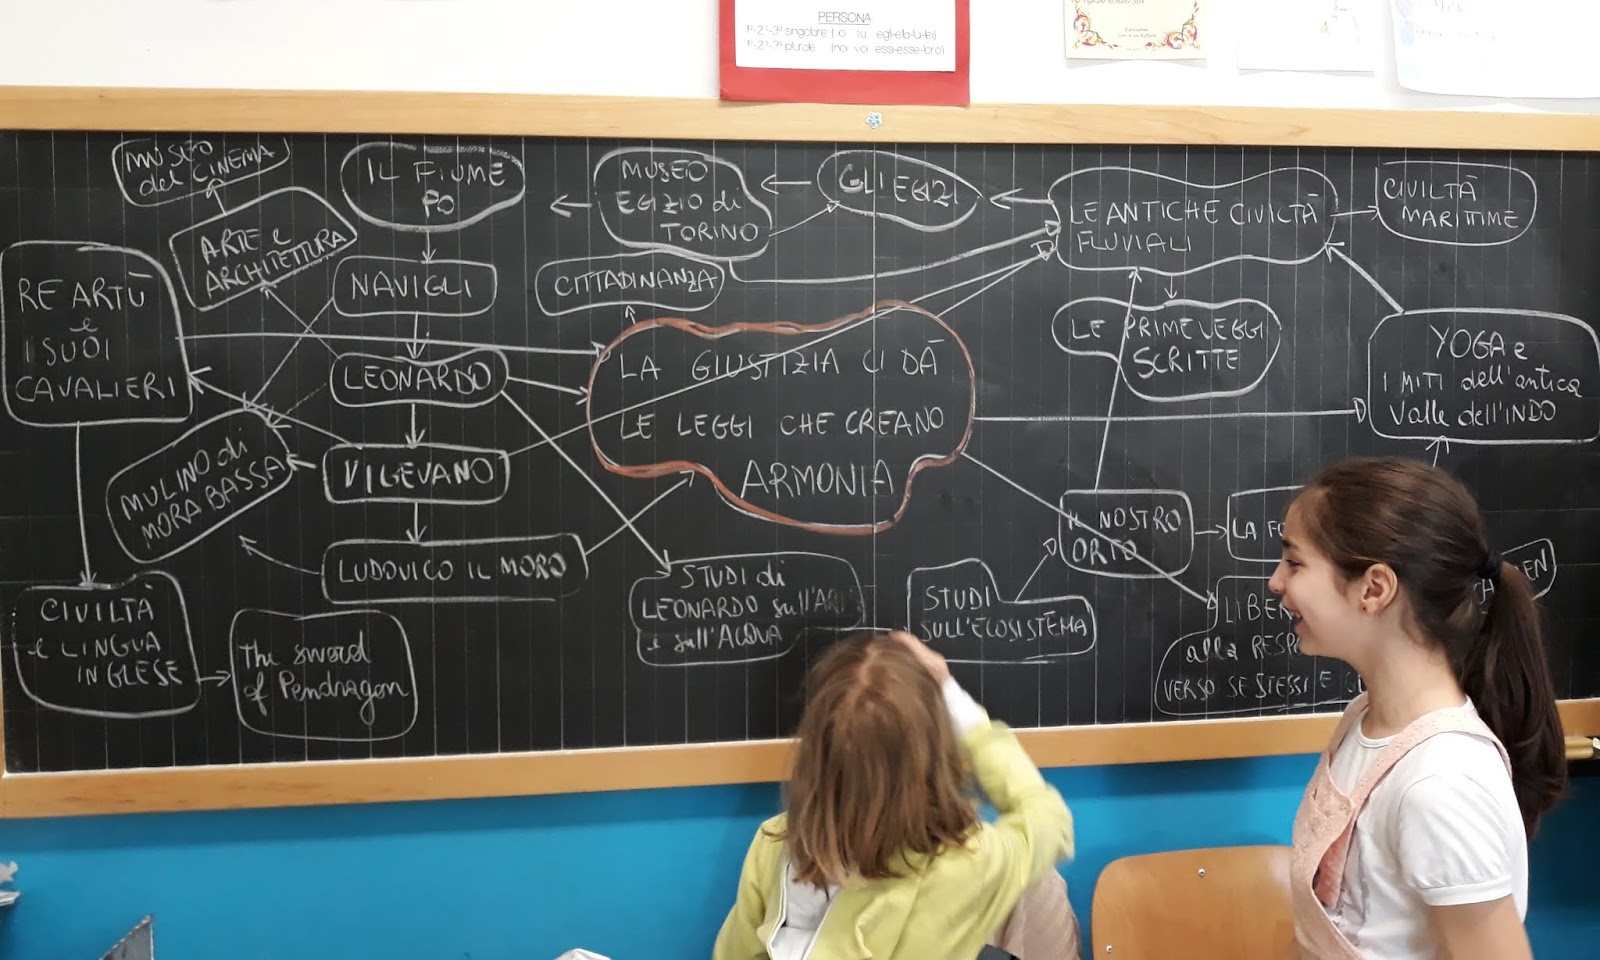 PERSONA
1ª-2ª-3ª singolare (io tu egli-ella-lui-lei)
1ª-2ª-3ª plurale (noi voi essi-esse-loro)
MUSEO
del CINEMA
IL FIUME
PO
MUSEO
EGIZIO di
TORINO
GLI EGIZI
LE ANTICHE CIVILTÀ
FLUVIALI
CIVILTÀ
MARITTIME
ARTE e
ARCHITETTURA
RE ARTÙ
e
I SUOI
CAVALIERI
NAVIGLI
CITTADINANZA
LE PRIME LEGGI
SCRITTE
YOGA e
I MITI dell'antica
Valle dell'INDO
LEONARDO
LA GIUSTIZIA CI DÀ
LE LEGGI CHE CREANO
ARMONIA
MULINO di
MORA BASSA
VIGEVANO
LUDOVICO IL MORO
IL NOSTRO
ORTO
LA
CIVILTÀ
e LINGUA
INGLESE
The sword
of Pendragon
STUDI di
LEONARDO sull'ARIA
e sull'ACQUA
STUDI
SULL'ECOSISTEMA
alla
VERSO SE STESSI E